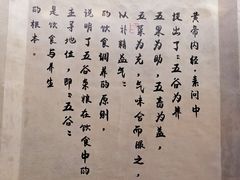 黄帝内经·素问中
提出了:“五谷为养
五果为助,五畜为益,
五菜为充,气味合而服之,
以补精益气”
的饮食调养的原则,
说明了五谷杂粮在饮食中的
主导地位,即“五谷”
是饮食与养生
的根本。